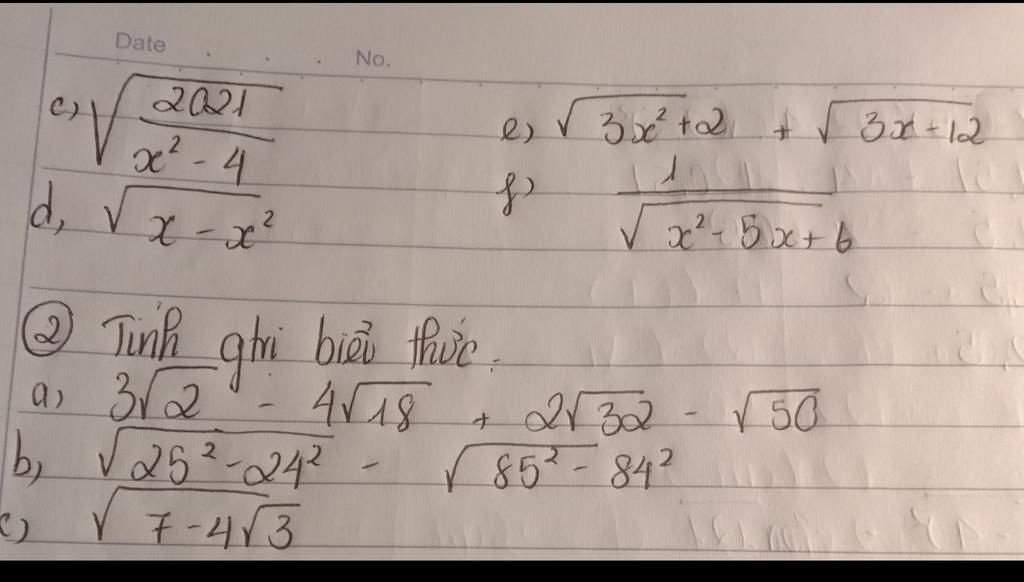 Date . . . No.
c) √(2021/(x² - 4))
e) √(3x² + 2) + √(3x - 12)
d, √(x - x²)
f) 1/√(x² - 5x + 6)
② Tính ghi biểu thức.
a) 3√2 - 4√18 + 2√32 - √50
b, √(25² - 24²) - √(85² - 84²)
c) √(7 - 4√3)